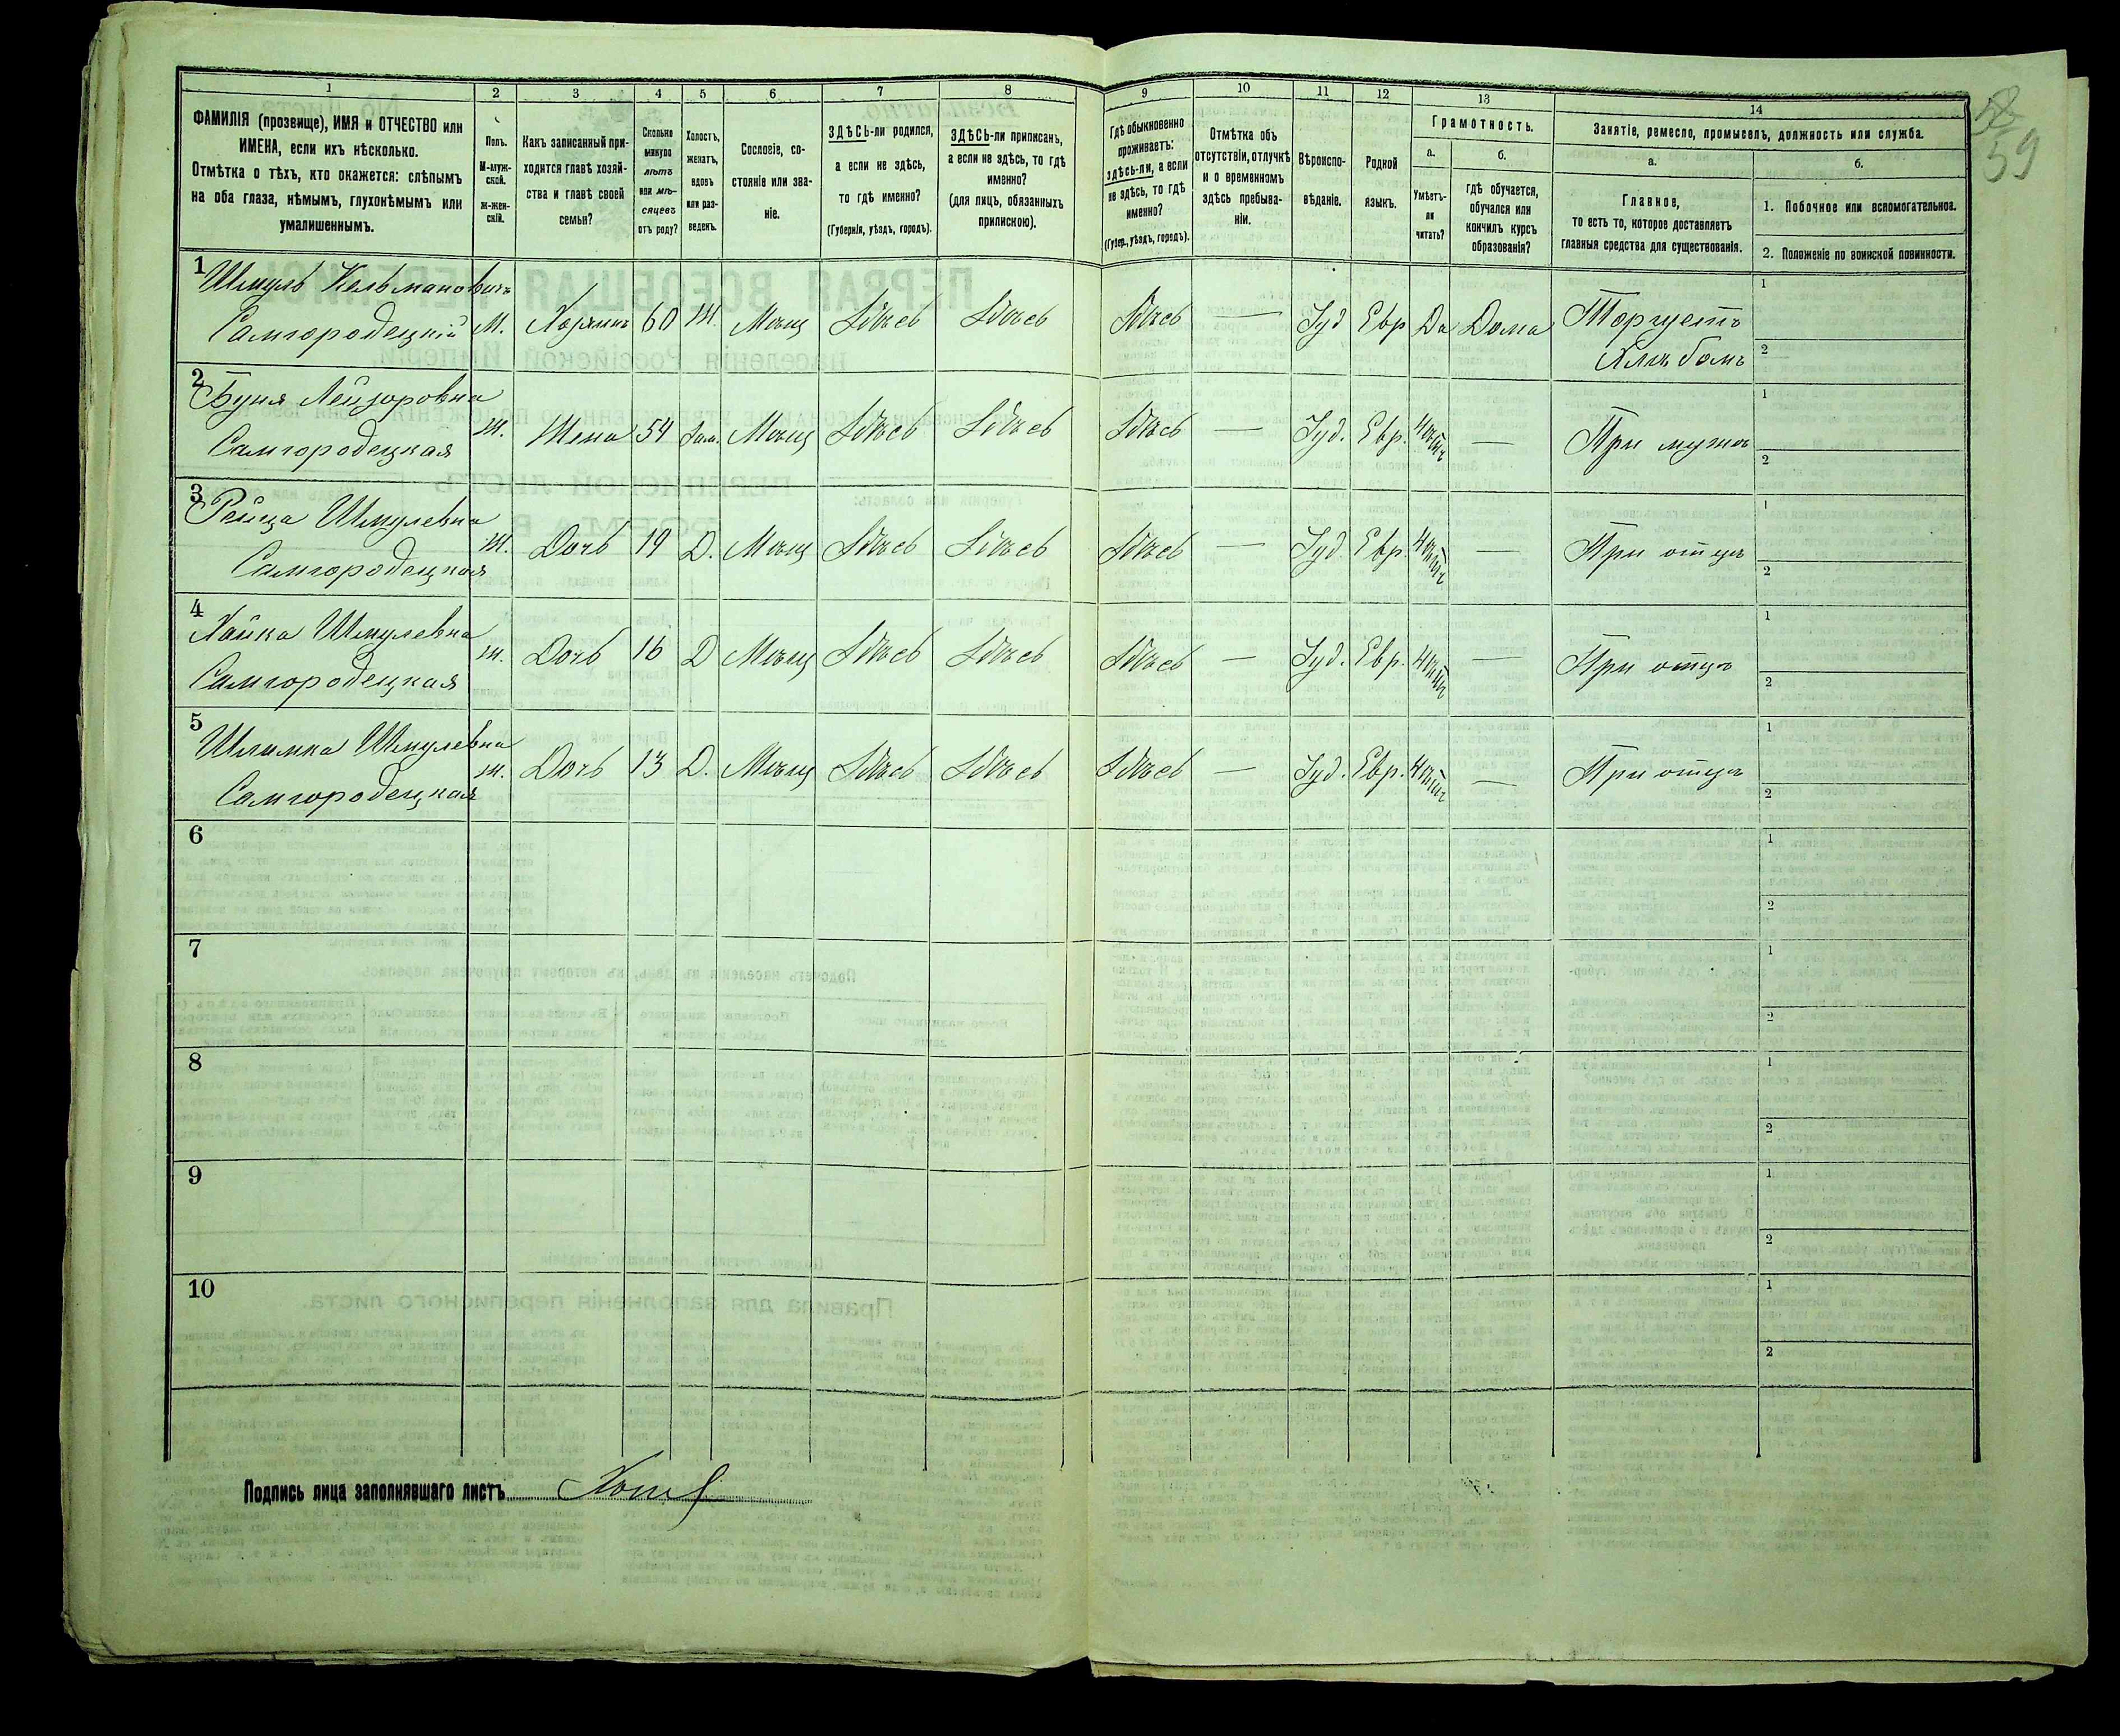 58
59
1 2 3 4 5 6 7 8 9 10 11 12 13 14
ФАМИЛІЯ (прозвище), ИМЯ и ОТЧЕСТВО или
ИМЕНА, если ихъ нѣсколько.
Отмѣтка о тѣхъ, кто окажется: слѣпымъ
на оба глаза, нѣмымъ, глухонѣмымъ или
умалишеннымъ.
Полъ.
М-муж-
ской.
Ж-жен-
скій.
Какъ записанный при-
ходится главѣ хозяй-
ства и главѣ своей
семьи?
Сколько
минуло
лѣтъ
или мѣ-
сяцевъ
отъ роду?
Холостъ,
женатъ,
вдовъ
или раз-
веденъ.
Сословіе, со-
стояніе или зва-
ніе.
ЗДѢСЬ-ли родился,
а если не здѣсь,
то гдѣ именно?
(Губернія, уѣздъ, городъ).
ЗДѢСЬ-ли приписанъ,
а если не здѣсь, то гдѣ
именно?
(для лицъ, обязанныхъ
припискою).
Гдѣ обыкновенно
проживаетъ:
здѣсь-ли, а если
не здѣсь, то гдѣ
именно?
(Губер., уѣздъ, городъ).
Отмѣтка объ
отсутствіи, отлучкѣ
и о временномъ
здѣсь пребыва-
ніи.
Вѣроиспо-
вѣданіе.
Родной
языкъ.
Грамотность.
а.
Умѣетъ-
ли
читать?
б.
гдѣ обучается,
обучался или
кончилъ курсъ
образованія?
Занятіе, ремесло, промыселъ, должность или служба.
а.
Главное,
то есть то, которое доставляетъ
главныя средства для существованія.
б.
1. Побочное или вспомогательное.
2. Положеніе по воинской повинности.
1 Шмуль Кельмановичъ
Самгородецкій М. Хозяинъ 60 Ж. Мѣщ Здѣсь Здѣсь Здѣсь — Іуд Евр Да Дома Торгуетъ
Хлѣбомъ
1
2
2 Буня Лейзоровна
Самгородецкая Ж. Жена 54 Зам. Мѣщ Здѣсь Здѣсь Здѣсь — Іуд. Евр. Нѣтъ — При мужѣ
1
2
3 Рейца Шмулевна
Самгородецкая Ж. Дочь 19 Д. Мѣщ Здѣсь Здѣсь Здѣсь — Іуд. Евр. Нѣтъ — При отцѣ
1
2
4 Хайка Шмулевна
Самгородецкая Ж. Дочь 16 Д Мѣщ Здѣсь Здѣсь Здѣсь — Іуд. Евр. Нѣтъ — При отцѣ
1
2
5 Шлимка Шмулевна
Самгородецкая Ж. Дочь 13 Д. Мѣщ Здѣсь Здѣсь Здѣсь — Іуд. Евр. Нѣтъ — При отцѣ
1
2
6
1
2
7
1
2
8
1
2
9
1
2
10
1
2
Подпись лица заполнявшаго листъ